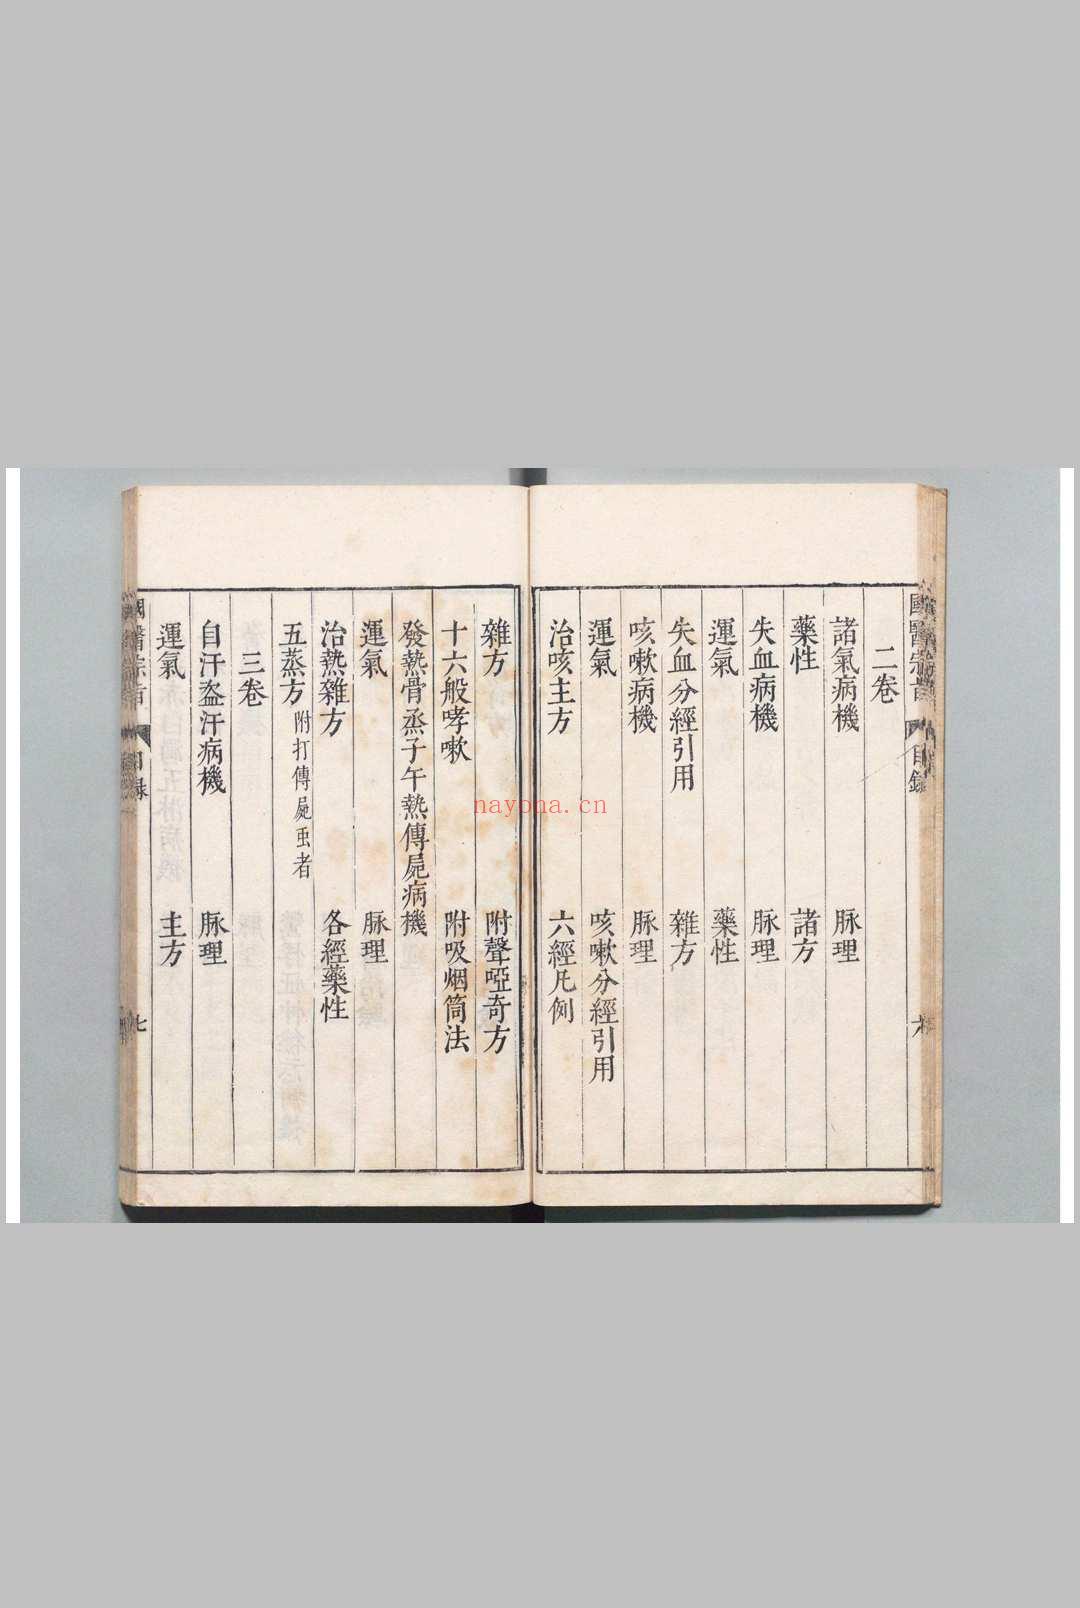 國醫宗旨 目錄 六
二卷
諸氣病機 脉理
藥性 諸方
失血病機 脉理
運氣 藥性
失血分經引用 雜方
咳嗽病機 脉理
運氣 咳嗽分經引用
治咳主方 六經凡例
雜方 附聲啞奇方
十六般哮嗽 附吸烟筒法
發熱骨烝子午熱傳屍病機
運氣 脉理
治熱雜方 各經藥性
五蒸方 附打傳屍虫者
三卷
自汗盗汗病機 脉理
運氣 主方
國醫宗旨 目錄 七
nayona.cn